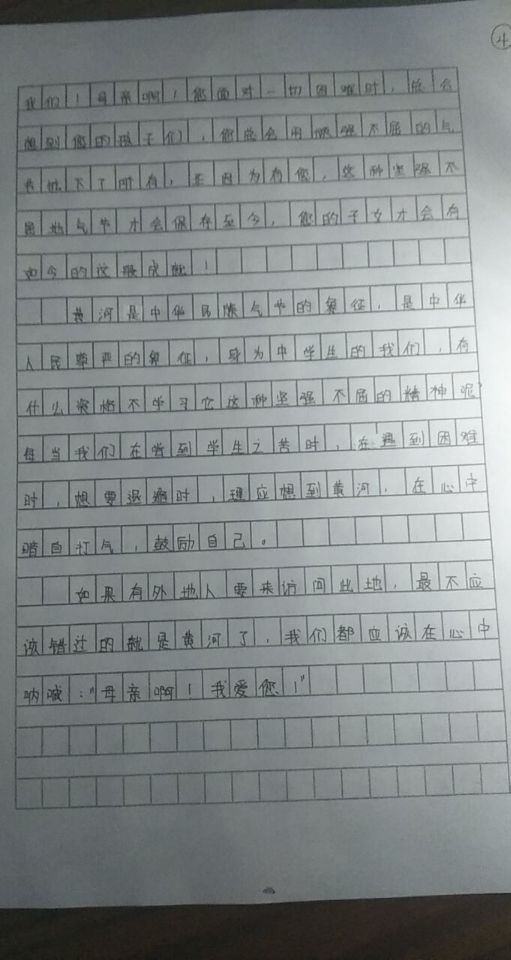 ④
我们！母亲啊！您面对一切困难时，总会
想到您的孩子们，您总会用顽强不屈的气
节抵下了所有，正因为有您，这种坚强不
屈的气节才会保存至今，您的子女才会有
如今的这般成就！
黄河是中华民族气节的象征，是中华
人民尊严的象征，身为中学生的我们，有
什么资格不学习它这种坚强不屈的精神呢？
每当我们在尝到学生之苦时，在遇到困难
时，想要退缩时，理应想到黄河，在心中
暗自打气，鼓励自己。
如果有外地人要来访问此地，最不应
该错过的就是黄河了，我们都应该在心中
呐喊：“母亲啊！我爱您！”